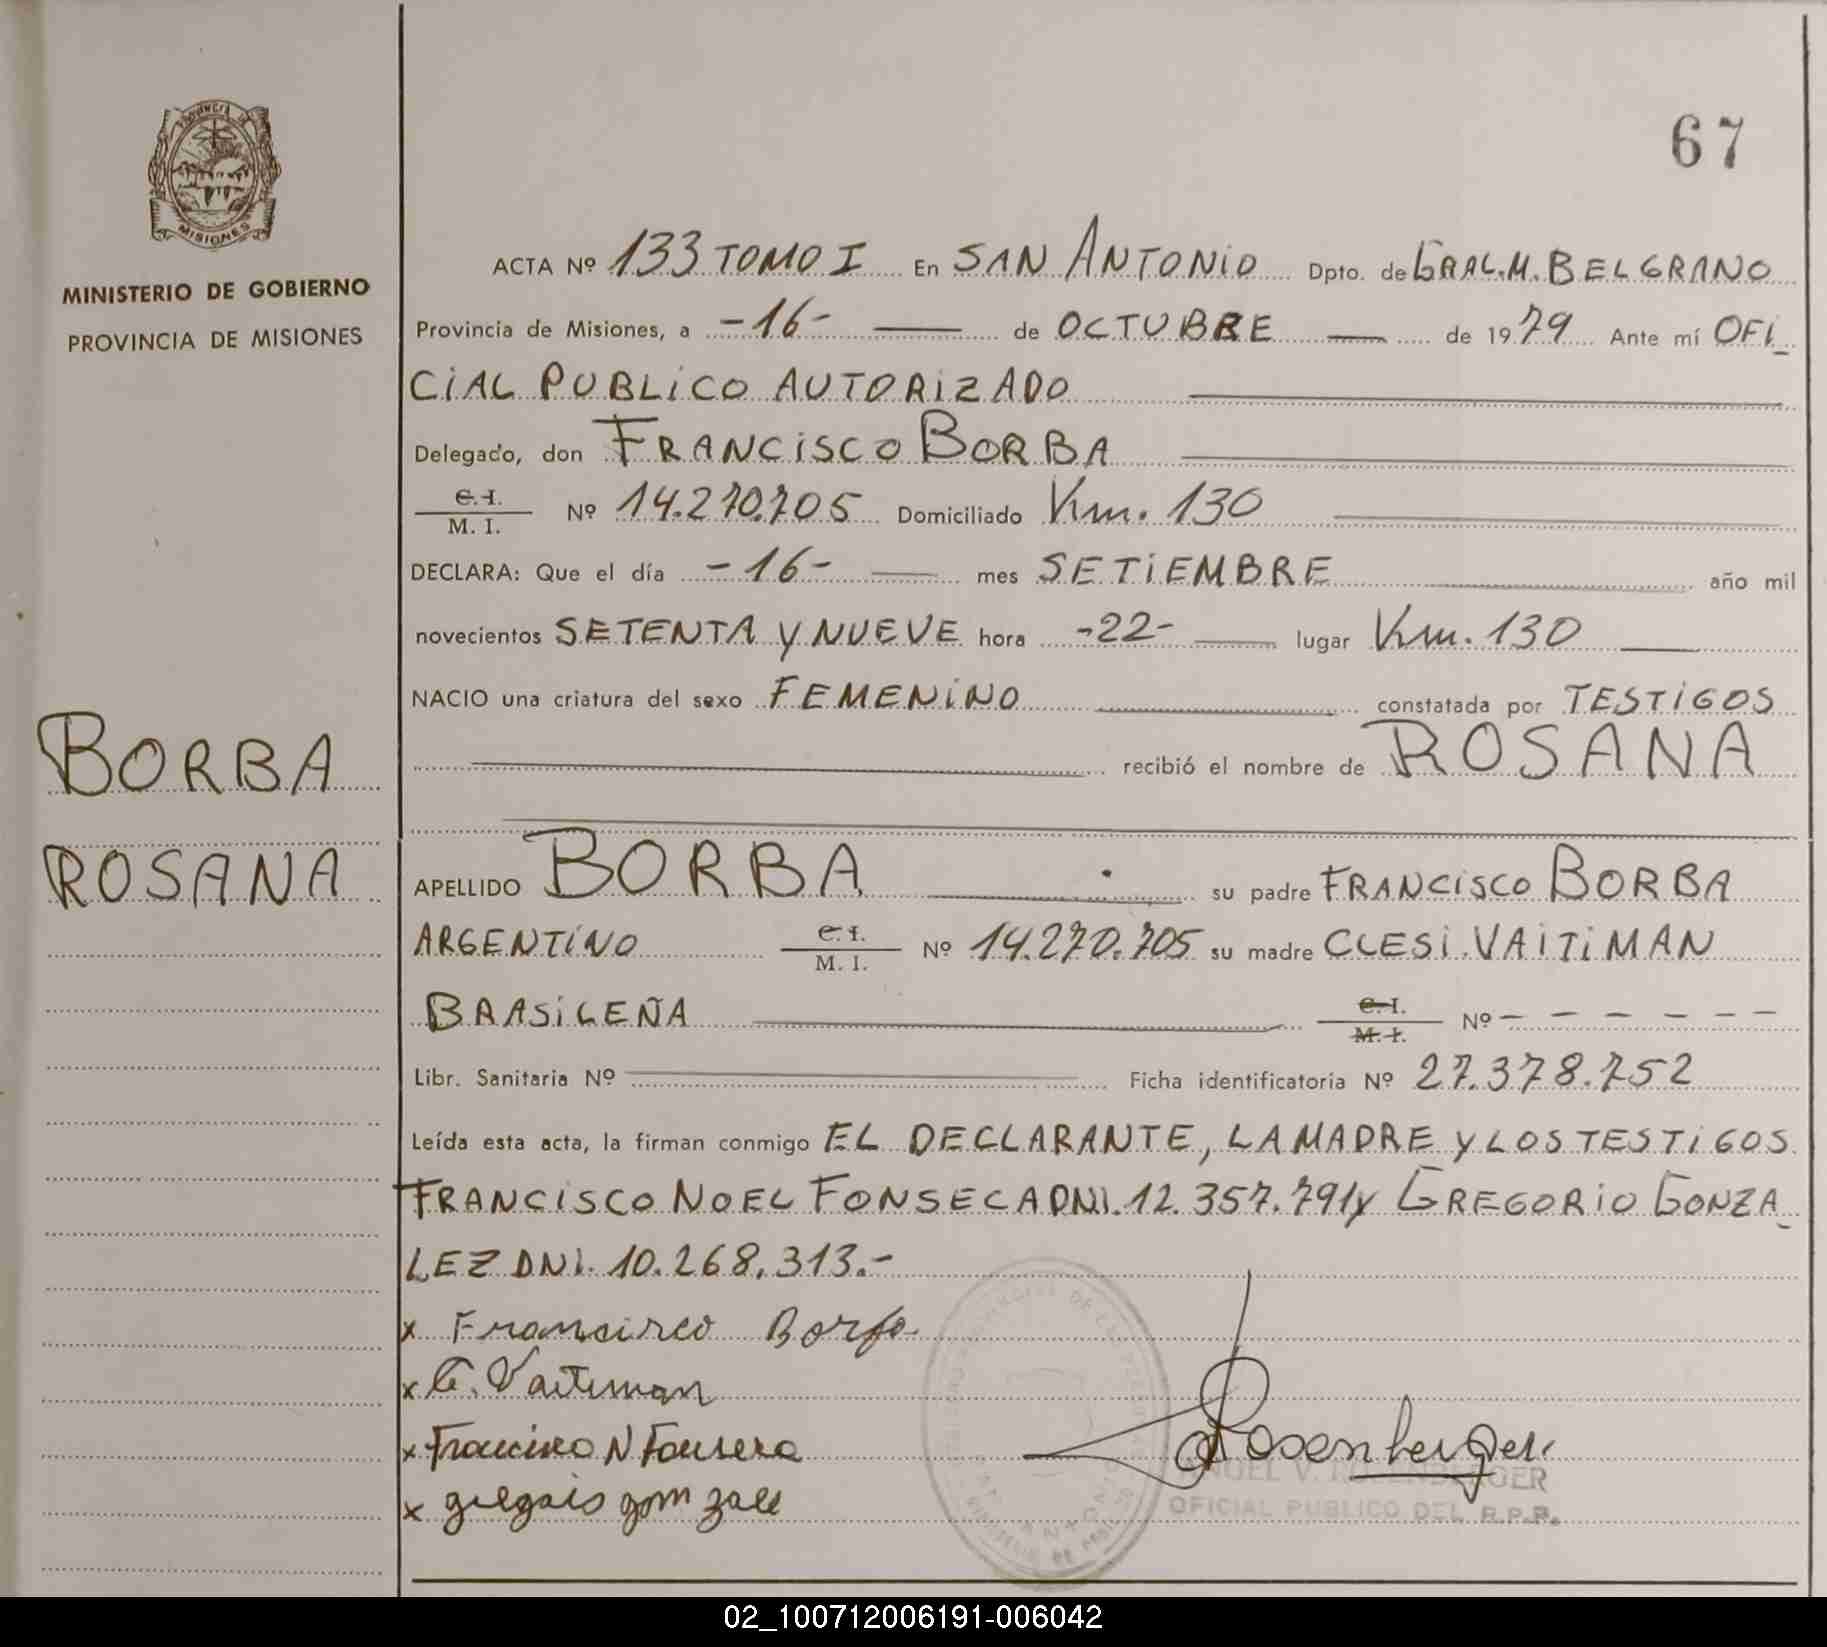 67
PROVINCIA DE
MISIONES
MINISTERIO DE GOBIERNO
PROVINCIA DE MISIONES
BORBA
ROSANA
ACTA Nº 133 TOMO I En SAN ANTONIO Dpto. de GRAL. M. BELGRANO
Provincia de Misiones, a -16- de OCTUBRE de 1979 Ante mí OFI_
CIAL PUBLICO AUTORIZADO
Delegado, don FRANCISCO BORBA
C.I. / M. I. Nº 14.270.705 Domiciliado Km. 130
DECLARA: Que el día -16- mes SETIEMBRE año mil
novecientos SETENTA Y NUEVE hora -22- lugar Km. 130
NACIO una criatura del sexo FEMENINO constatada por TESTIGOS
recibió el nombre de ROSANA
APELLIDO BORBA su padre FRANCISCO BORBA
ARGENTINO C.I. / M. I. Nº 14.270.705 su madre CLESI VAITIMAN
BRASILEÑA C.I. / M.I. Nº - - - - - -
Libr. Sanitaria Nº Ficha identificatoria Nº 27.378.752
Leída esta acta, la firman conmigo EL DECLARANTE, LA MADRE Y LOS TESTIGOS
FRANCISCO NOEL FONSECA DNI. 12.357.791 y GREGORIO GONZA_
LEZ DNI. 10.268.313.-
x Francisco Borba
x C. Vaitiman
x Francisco N Fonseca
x
Rosenberger
OFICIAL PUBLICO DEL R.P.P.
02_100712006191-006042